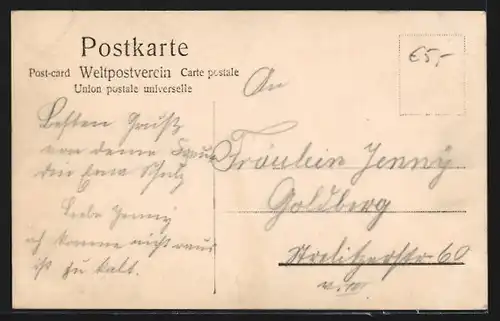 Postkarte
Post-card Weltpostverein Carte postale
Union postale universelle
€5,-
An
Fräulein Jenny
Goldberg
Strelitzerstr 60
v. III
Besten Gruß
von deiner
Erna Schulz
Liebe Jenny
ich komme nicht raus
ist zu kalt.